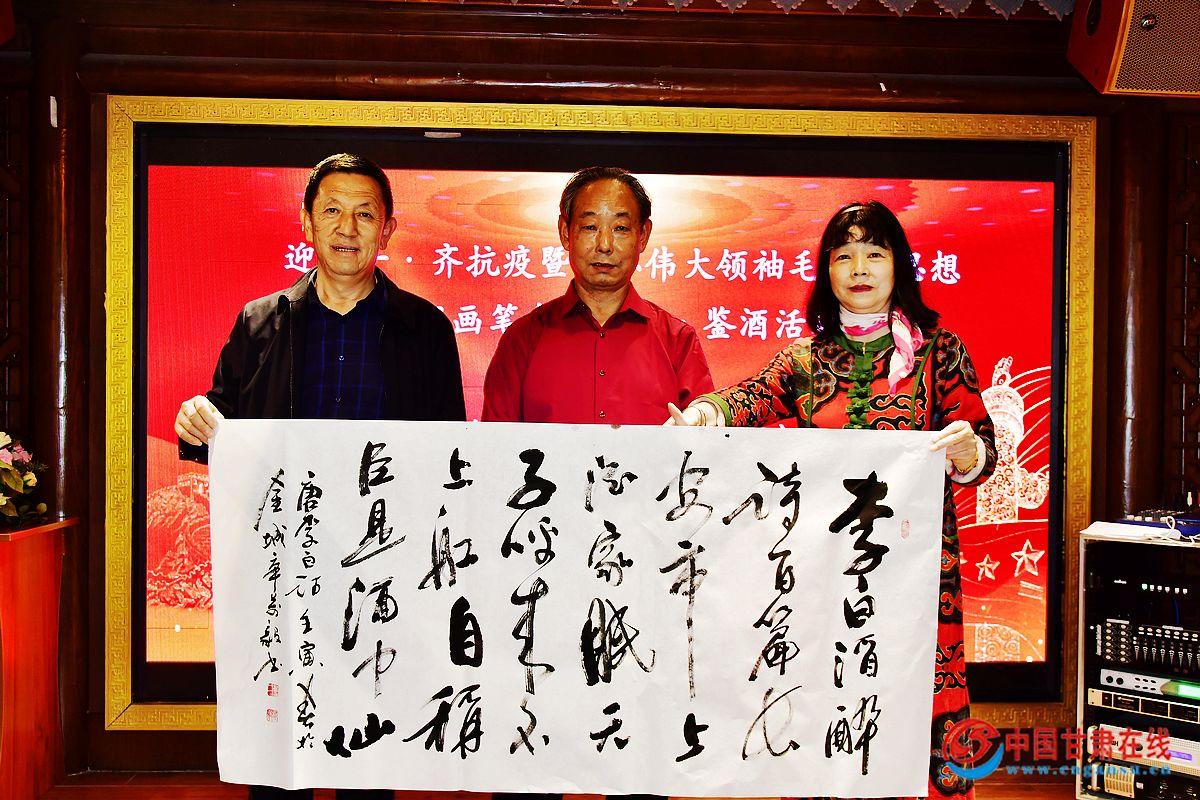 迎 · 齐抗疫暨 伟大领袖毛 思想
画笔 鉴酒活
李白酒醉
诗百篇长
安市上
酒家眠天
子呼来不
上舡自稱
臣是酒中仙
唐李白诗壬寅春於
金城
中国甘肃在线
www.cngansu.cn